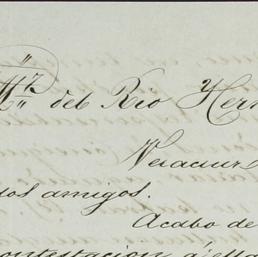 del Rio Her
Veracruz
dos amigos.
Acabo de
ontestacion á